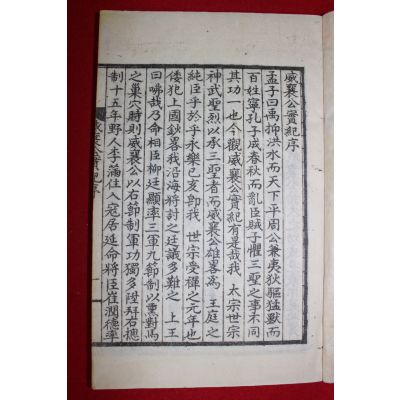 威襄公實紀序
孟子曰禹抑洪水而天下平周公兼夷狄驅猛獸而
百姓寧孔子成春秋而亂臣賊子懼三聖之事不同
其功一也今觀威襄公實紀有是哉我 太宗世宗
神武聖烈以承三聖者而威襄公雄畧爲 王庭之
純臣乎於乎永樂己亥卽我 世宗受禪之元年也
倭犯上國鈔畧我沿海將討之廷議多難之 上王
曰咈哉乃命相臣柳廷顯率三軍九節制以熏對馬
之巢穴時則威襄公以右節制軍功獨多陞拜右摠
制十五年野人李滿住入寇居延命將臣崔潤德率
威襄公實紀序